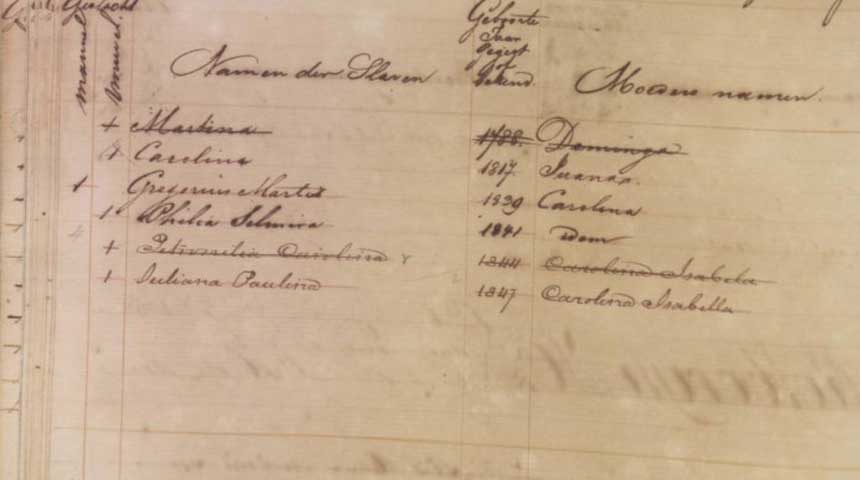 Geslacht
mannel. vrouwel. Namen der Slaven Geboorte Jaar gegist of bekend. Moeders namen.
+ Martina 1788. Dominga
+ Carolina 1817. Juana
1 Gregorius Martis 1839 Carolina
1 Philia Selmira 1841 Idem
+ Petronilia Carolina 1844 Carolina Isabela
1 Juliana Paulina 1847 Carolina Isabella